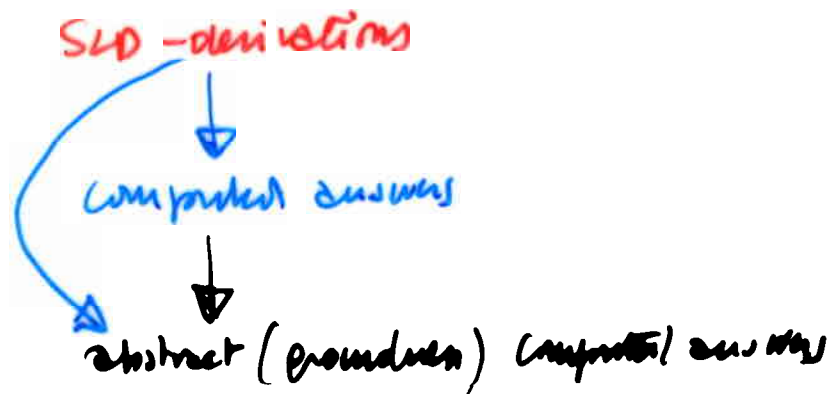 SLD-derivations
computed answers
abstract (groundness) computed answers